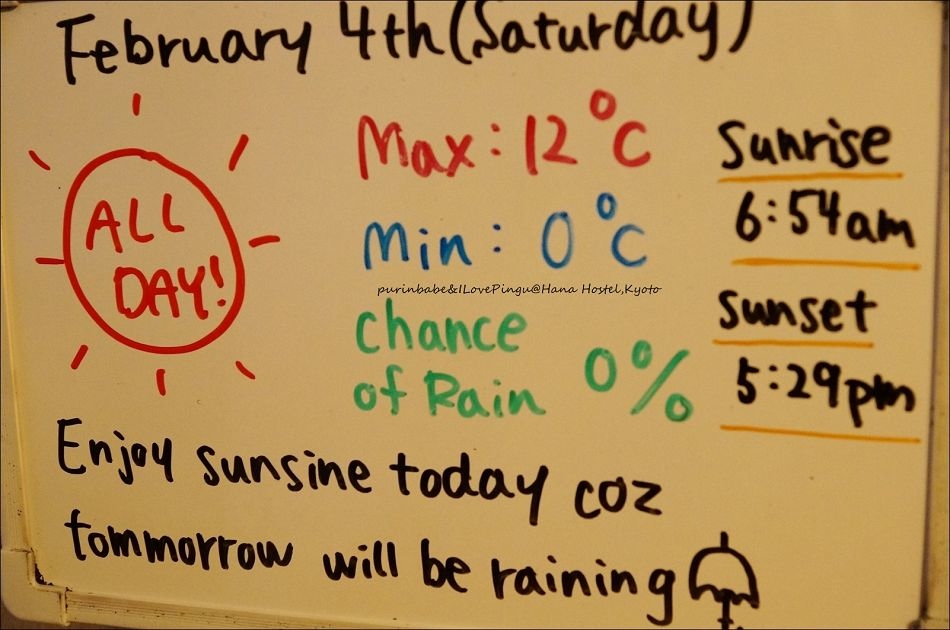 February 4th (Saturday)
ALL
DAY!
Max: 12°C
Min: 0°C
purinbabe&ILovePingu@Hana Hostel,Kyoto
chance
of Rain 0%
Sunrise
6:54am
sunset
5:29pm
Enjoy sunsine today coz
tommorrow will be raining